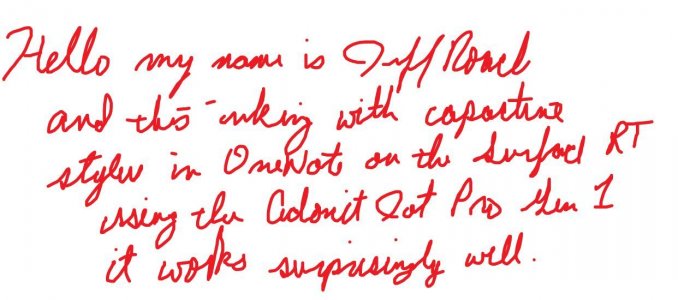 Hello my name is Jeff
and this inking with capactive
stylus in OneNote on the Surface RT
using the Adonit Jot Pro Gen 1
it works surprisingly well.